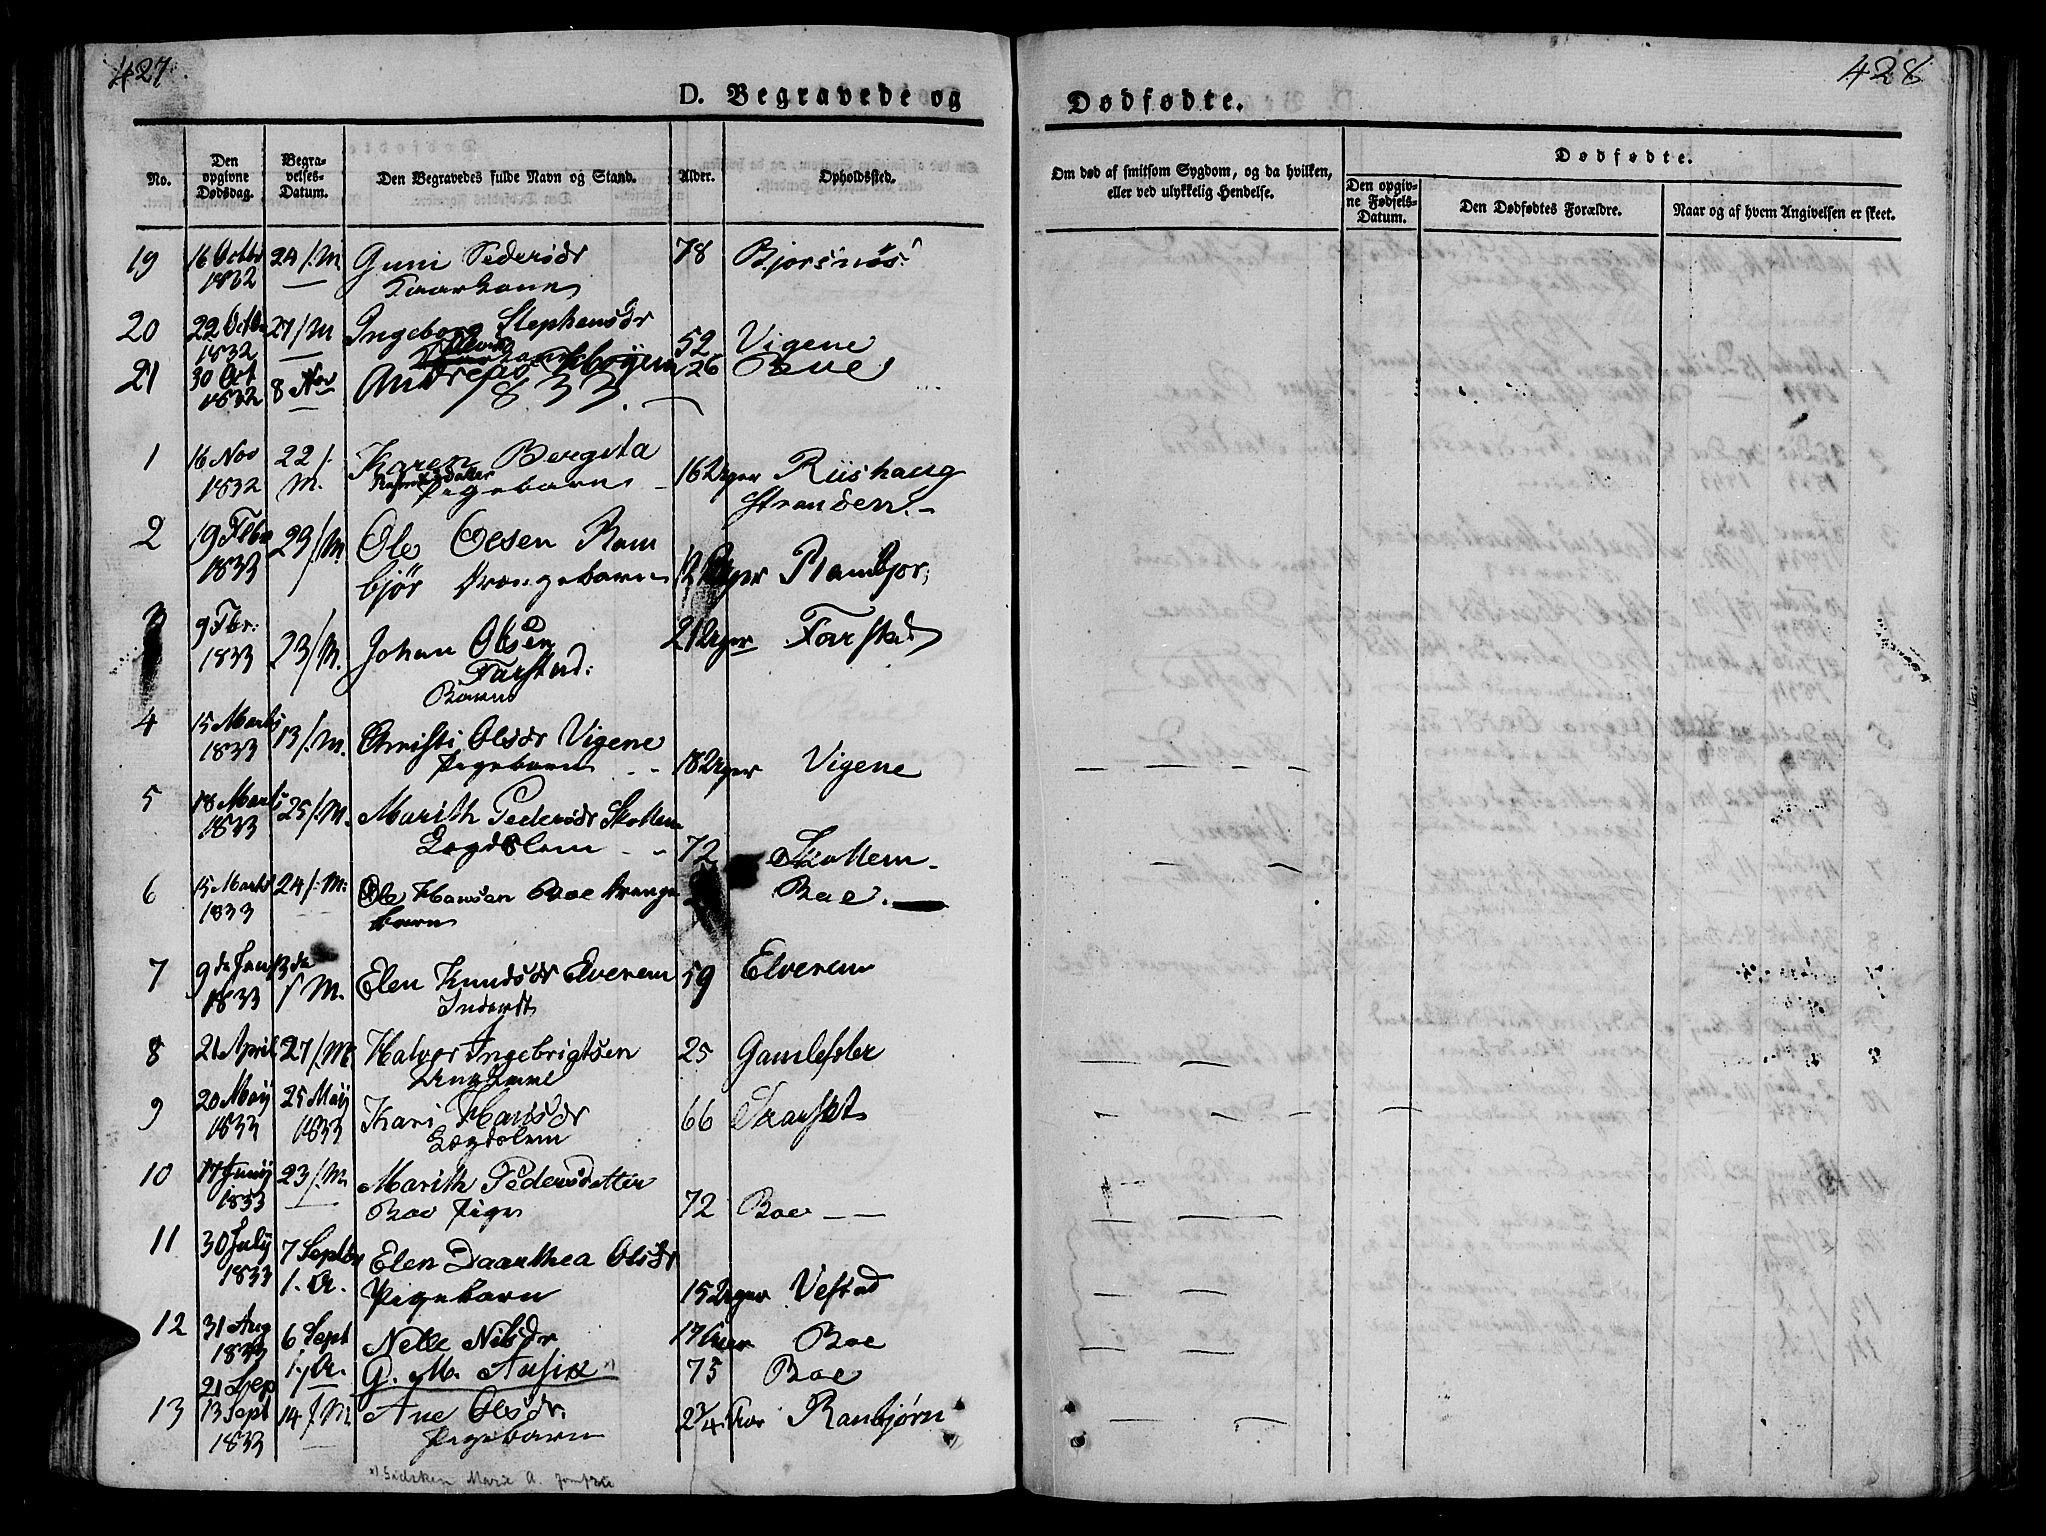 427
D. Begravede og
No.
Den opgivne Dødsdag.
Begravelses-Datum.
Den Begravedes fulde Navn og Stand.
Alder.
Opholdssted.
19 16 Octbr 1832 24/. M Guni Pedersdr 78 Bjorsnøs
20 22 Octbr 1832 27/. M Ingeborg Stephensdr 52 Vigene
21 30 Oct 1832 8 Nov Andreas 26 Boe
1833.
1 16 Nov 1832 22/. M. Karen Bergita
Rasmusdatter Pigebarn 16 Uger Riishaug
Stranden.
2 19 Febr 1833 23/. M Ole Olsen Ram
bjør Drængebarn 12 Uger Rambjor
3 9 Fbr. 1833 23/. M. Johan Olsen
Farstad:
Barn 21 Uger Farstad
4 15 Marts 1833 13/. M. Christi Olsdr Vigene
Pigebarn 18 Uger Vigene
5 18 Marts 1833 25/. M. Marith Pedersdr Skottem
Lægdslem 72 Skottem
6 15 Marts 1833 24/. M: Ole Hansen Boe Drænge
barn Boe.
7 9de Jan 1833 13de /. M. Elen Knudsdr Elverem 59 Elverem
Inderst
8 21 April 27/. M. Halvor Ingebrigtsen 25 Gamlesæter
Ungkarl
9 20 Maÿ 1833 25 Maÿ 1833 Kari Hansdr 66 Skarset
Lægdslem
10 17 Junÿ 1833 23/. M. Marith Pedersdatter
Boe Pige 72 Boe
11 30 Julÿ 1833 7 Septbr /. A. Elen Daarthea Olsdr
Pigebarn 15 Uger Vestad
12 31 Aug 1833 6 Sept /. A. Nelle Nilsdr 17 Boe
21 Sep G. M. Ausix x) 75 Boe
13 13 Sept 1833 14/. M. Ane Olsdr. 2 3/4 Aar Ranbjørn
Pigebarn
x) Marie A. Jomfru
428
Dødfødte.
Om død af smitsom Sygdom, og da hvilken,
eller ved ulykkelig Hendelse.
Dødfødte.
Den opgivne Fødsels-Datum.
Den Dødfødtes Forældre.
Naar og af hvem Angivelsen er skeet.